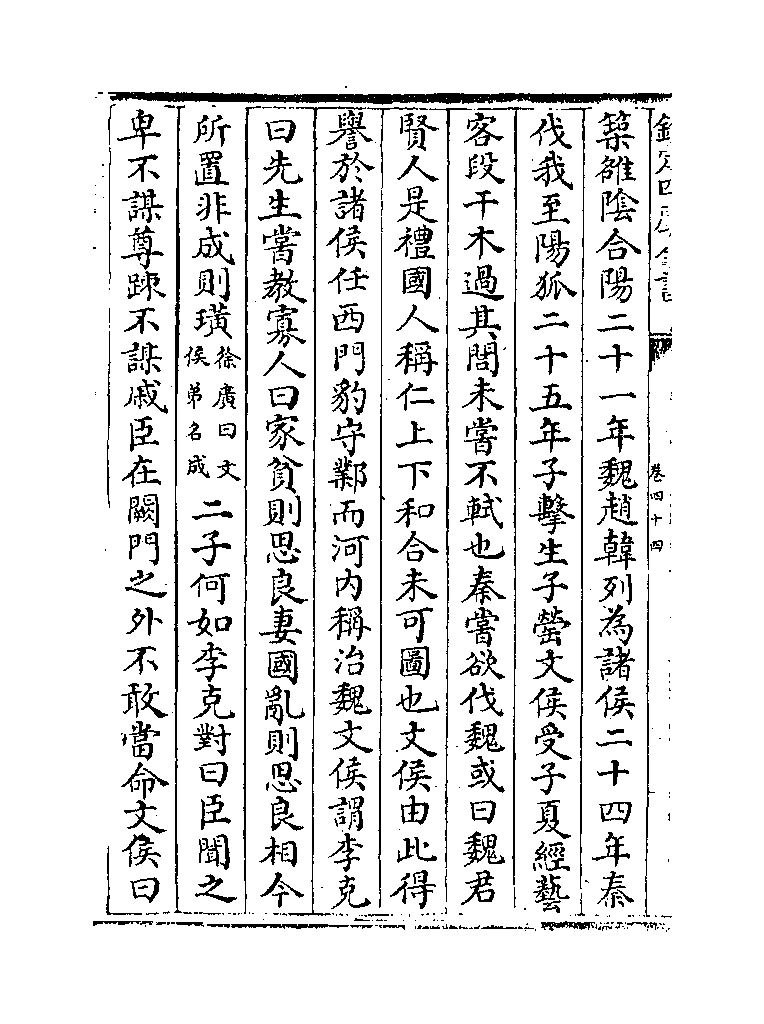 卷四十四
築雒陰合陽二十一年魏趙韓列為諸侯二十四年秦
伐我至陽狐二十五年子擊生子罃文侯受子夏經藝
客段干木過其閭未嘗不軾也秦嘗欲伐魏或曰魏君
賢人是禮國人稱仁上下和合未可圖也文侯由此得
譽於諸侯任西門豹守鄴而河內稱治魏文侯謂李克
曰先生嘗教寡人曰家貧則思良妻國亂則思良相今
所置非成則璜徐廣曰文侯弟名成二子何如李克對曰臣聞之
卑不謀尊踈不謀戚臣在闕門之外不敢當命文侯曰